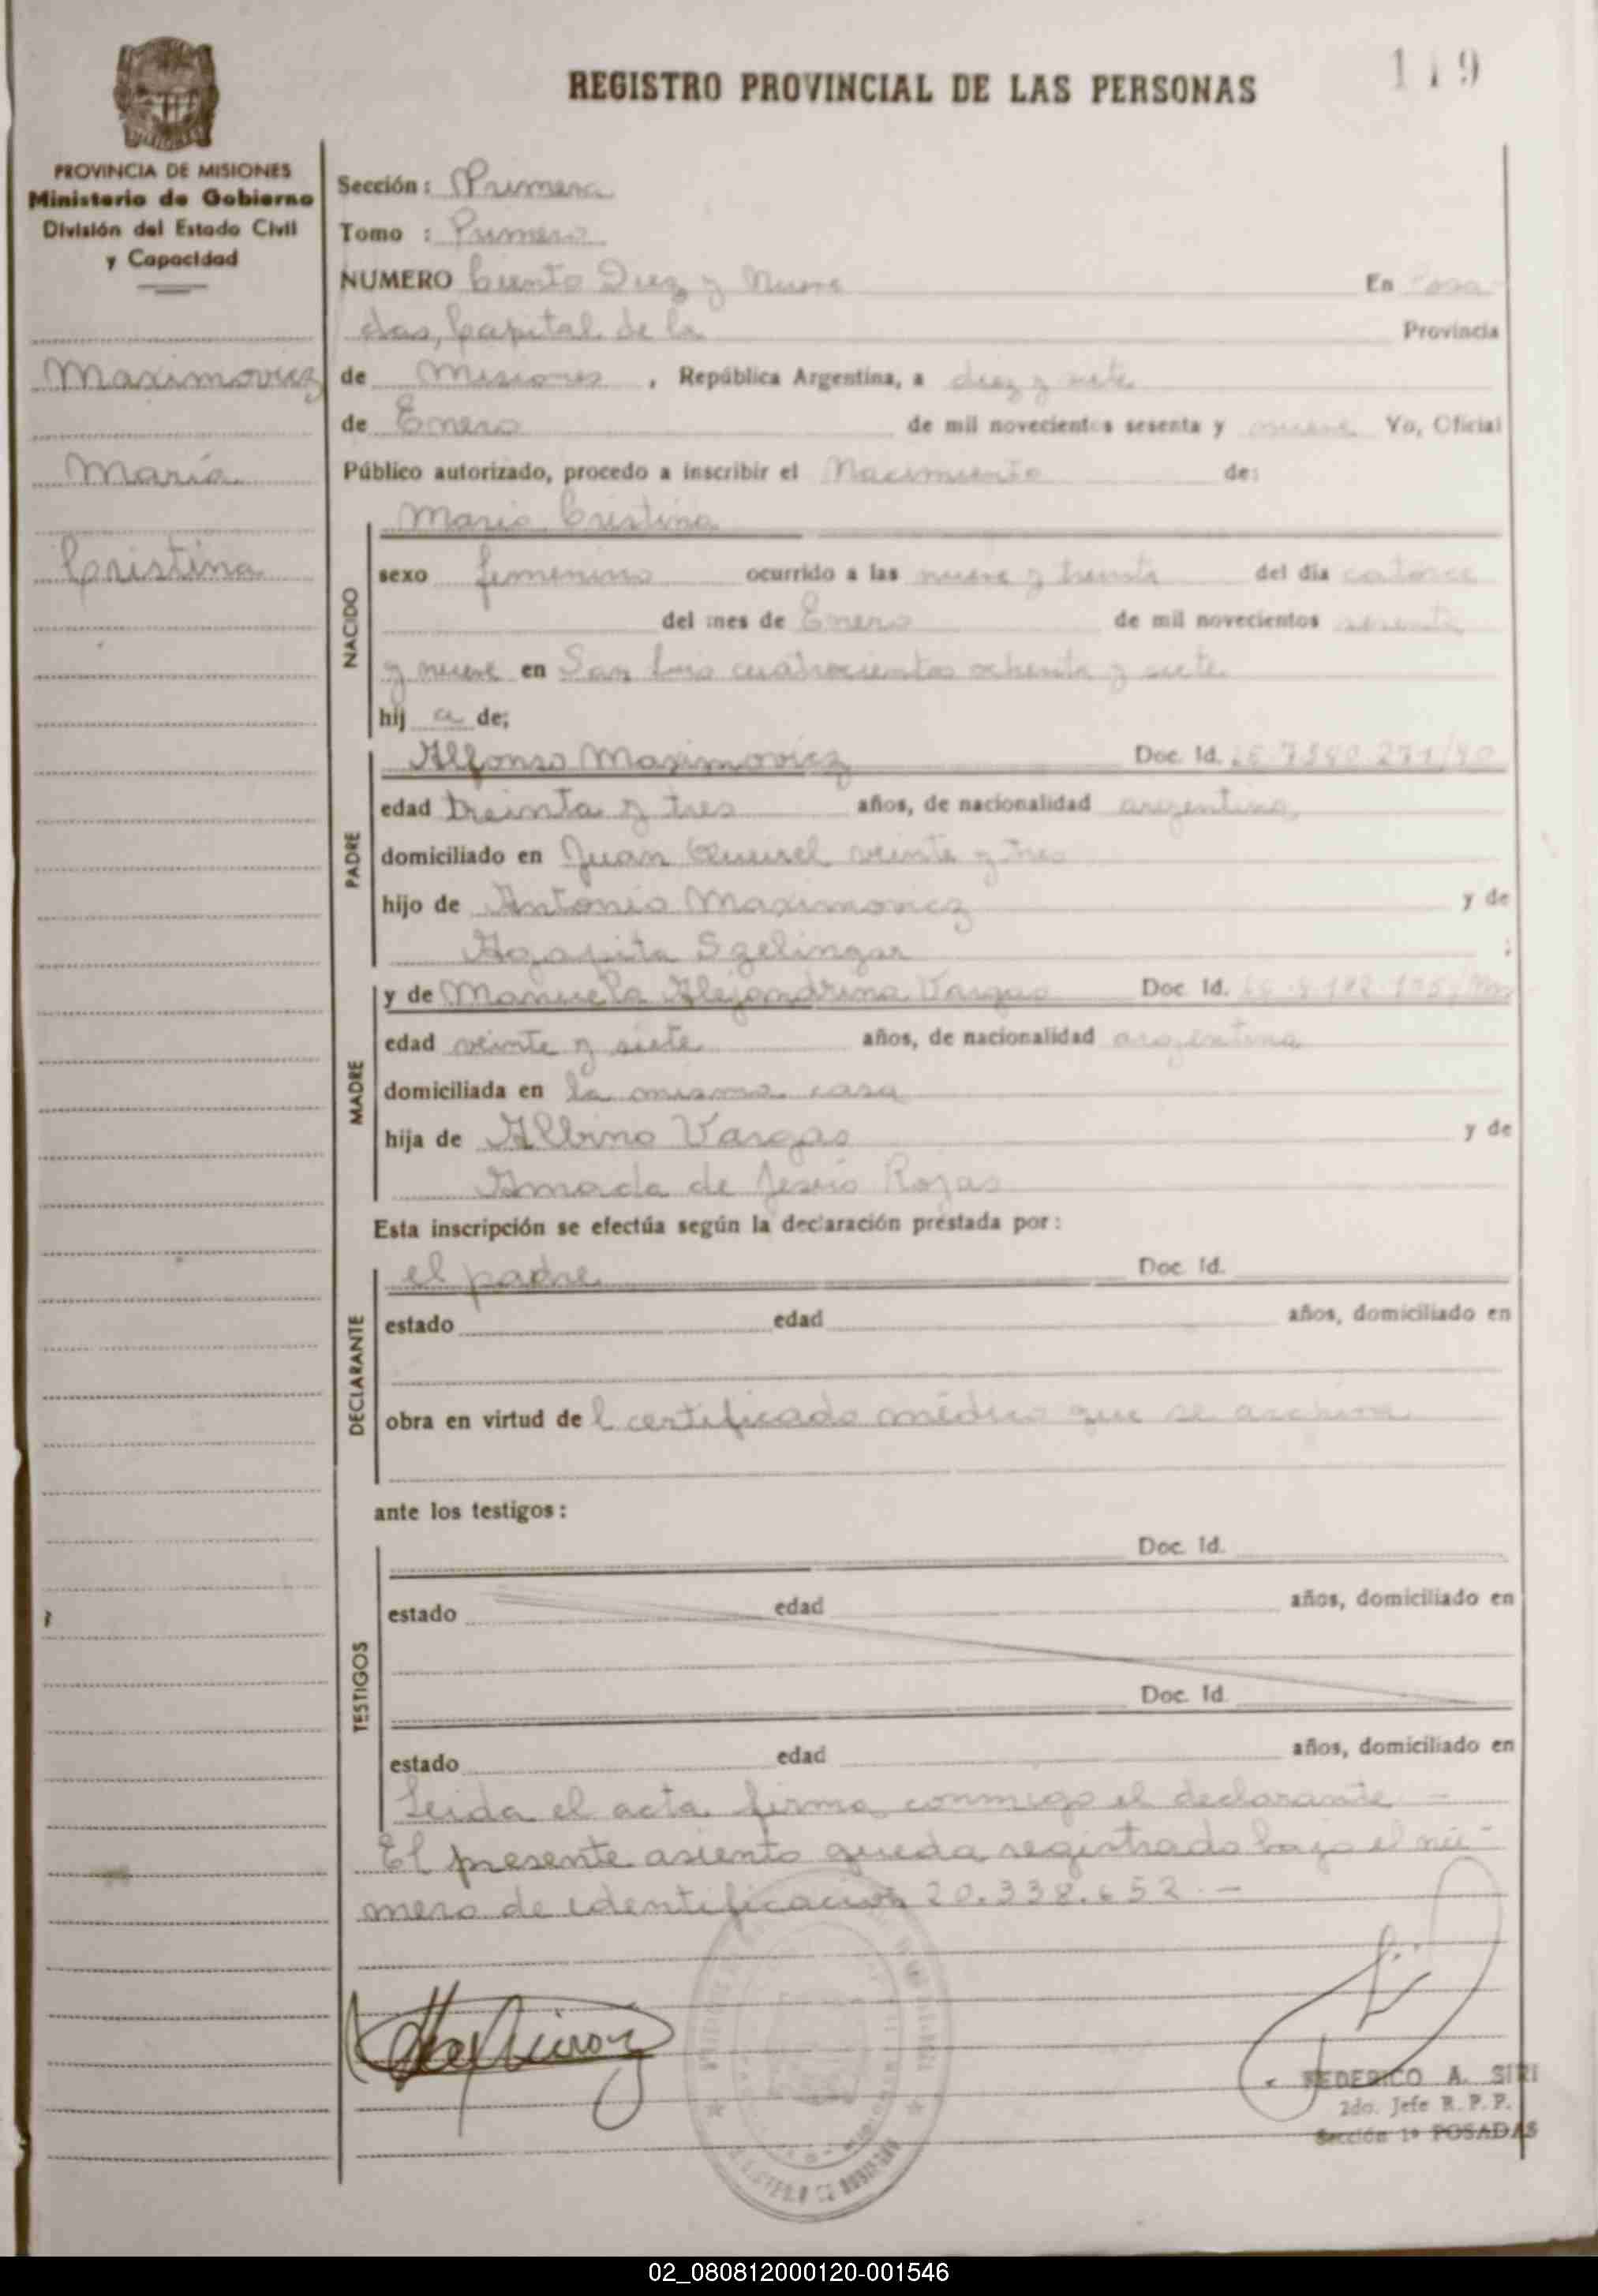 119
REGISTRO PROVINCIAL DE LAS PERSONAS
PROVINCIA DE MISIONES
Ministerio de Gobierno
División del Estado Civil
y Capacidad
Maximovicz
María
Cristina
Sección: Primera
Tomo : Primero
NUMERO Ciento Diez y Nueve En Posa
das, Capital de la Provincia
de Misiones, República Argentina, a diez y siete
de Enero de mil novecientos sesenta y nueve Yo, Oficial
Público autorizado, procedo a inscribir el Nacimiento de:
NACIDO
Maria Cristina
sexo femenino ocurrido a las nueve y treinta del día catorce
del mes de Enero de mil novecientos sesenta
y nueve en San Luis cuatrocientos ochenta y siete
hij a de;
PADRE
Alfonso Maximovicz Doc. Id.
edad treinta y tres años, de nacionalidad argentina
domiciliado en Juan Queirel veinte y tres
hijo de Antonio Maximovicz y de
Agapita Szelingar ;
MADRE
y de Manuela Alejandrina Vargas Doc Id.
edad veinte y siete años, de nacionalidad argentina
domiciliada en la misma casa
hija de Albino Vargas y de
Amada de Jesús Rojas
Esta inscripción se efectúa según la declaración prestada por:
DECLARANTE
el padre Doc Id.
estado edad años, domiciliado en
obra en virtud de l certificado médico que se archiva
ante los testigos:
TESTIGOS
Doc. Id.
estado edad años, domiciliado en
Doc. Id.
estado edad años, domiciliado en
Leida el acta firma conmigo el declarante –
El presente asiento queda registrado bajo el nú-
mero de identificacion 20.338.652.–
FEDERICO A. SIRI
2do. Jefe R. P. P.
Sección 1ª POSADAS
02_080812000120-001546